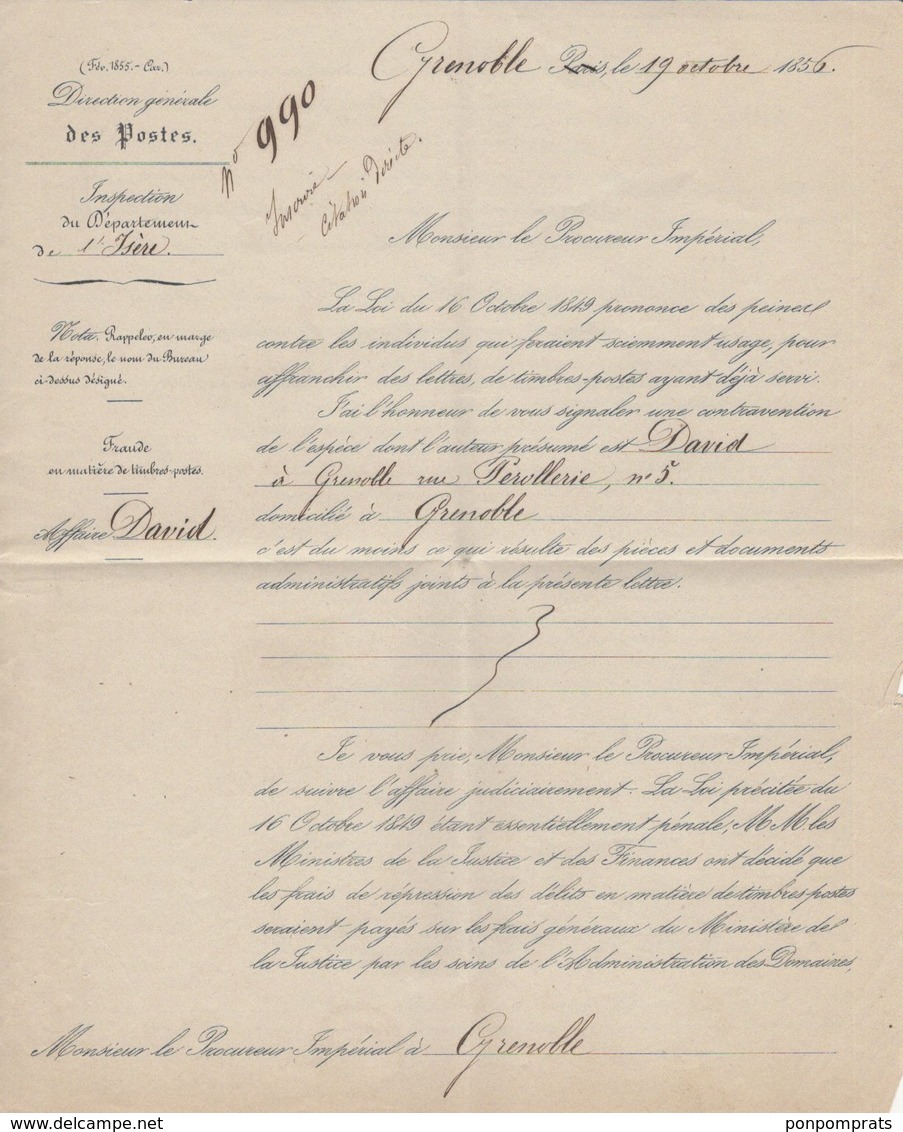 (Fév. 1855. - Car.)
Direction générale
des Postes.
Inspection
du Département
de l'Isère.
Nota. Rappeler, en marge
de la réponse, le nom du Bureau
ci-dessus désigné.
Fraude
en matière de timbres-postes.
Affaire David.
Grenoble Paris, le 19 octobre 1856.
No 990
Inscrire
citation directe.
Monsieur le Procureur Impérial,
La Loi du 16 Octobre 1849 prononce des peines
contre les individus qui feraient sciemment usage, pour
affranchir des lettres, de timbres-postes ayant déjà servi.
J'ai l'honneur de vous signaler une contravention
de l'espèce dont l'auteur présumé est David
à Grenoble rue Perollerie, no 5.
domicilié à Grenoble
c'est du moins ce qui résulte des pièces et documents
administratifs joints à la présente lettre.
Je vous prie, Monsieur le Procureur Impérial,
de suivre l'affaire judiciairement. La Loi précitée du
16 Octobre 1849 étant essentiellement pénale, MM. les
Ministres de la Justice et des Finances ont décidé que
les frais de répression des délits en matière de timbres-postes
seraient payés sur les frais généraux du Ministère de
la Justice par les soins de l'Administration des Domaines,
Monsieur le Procureur Impérial à Grenoble
ponpomprats